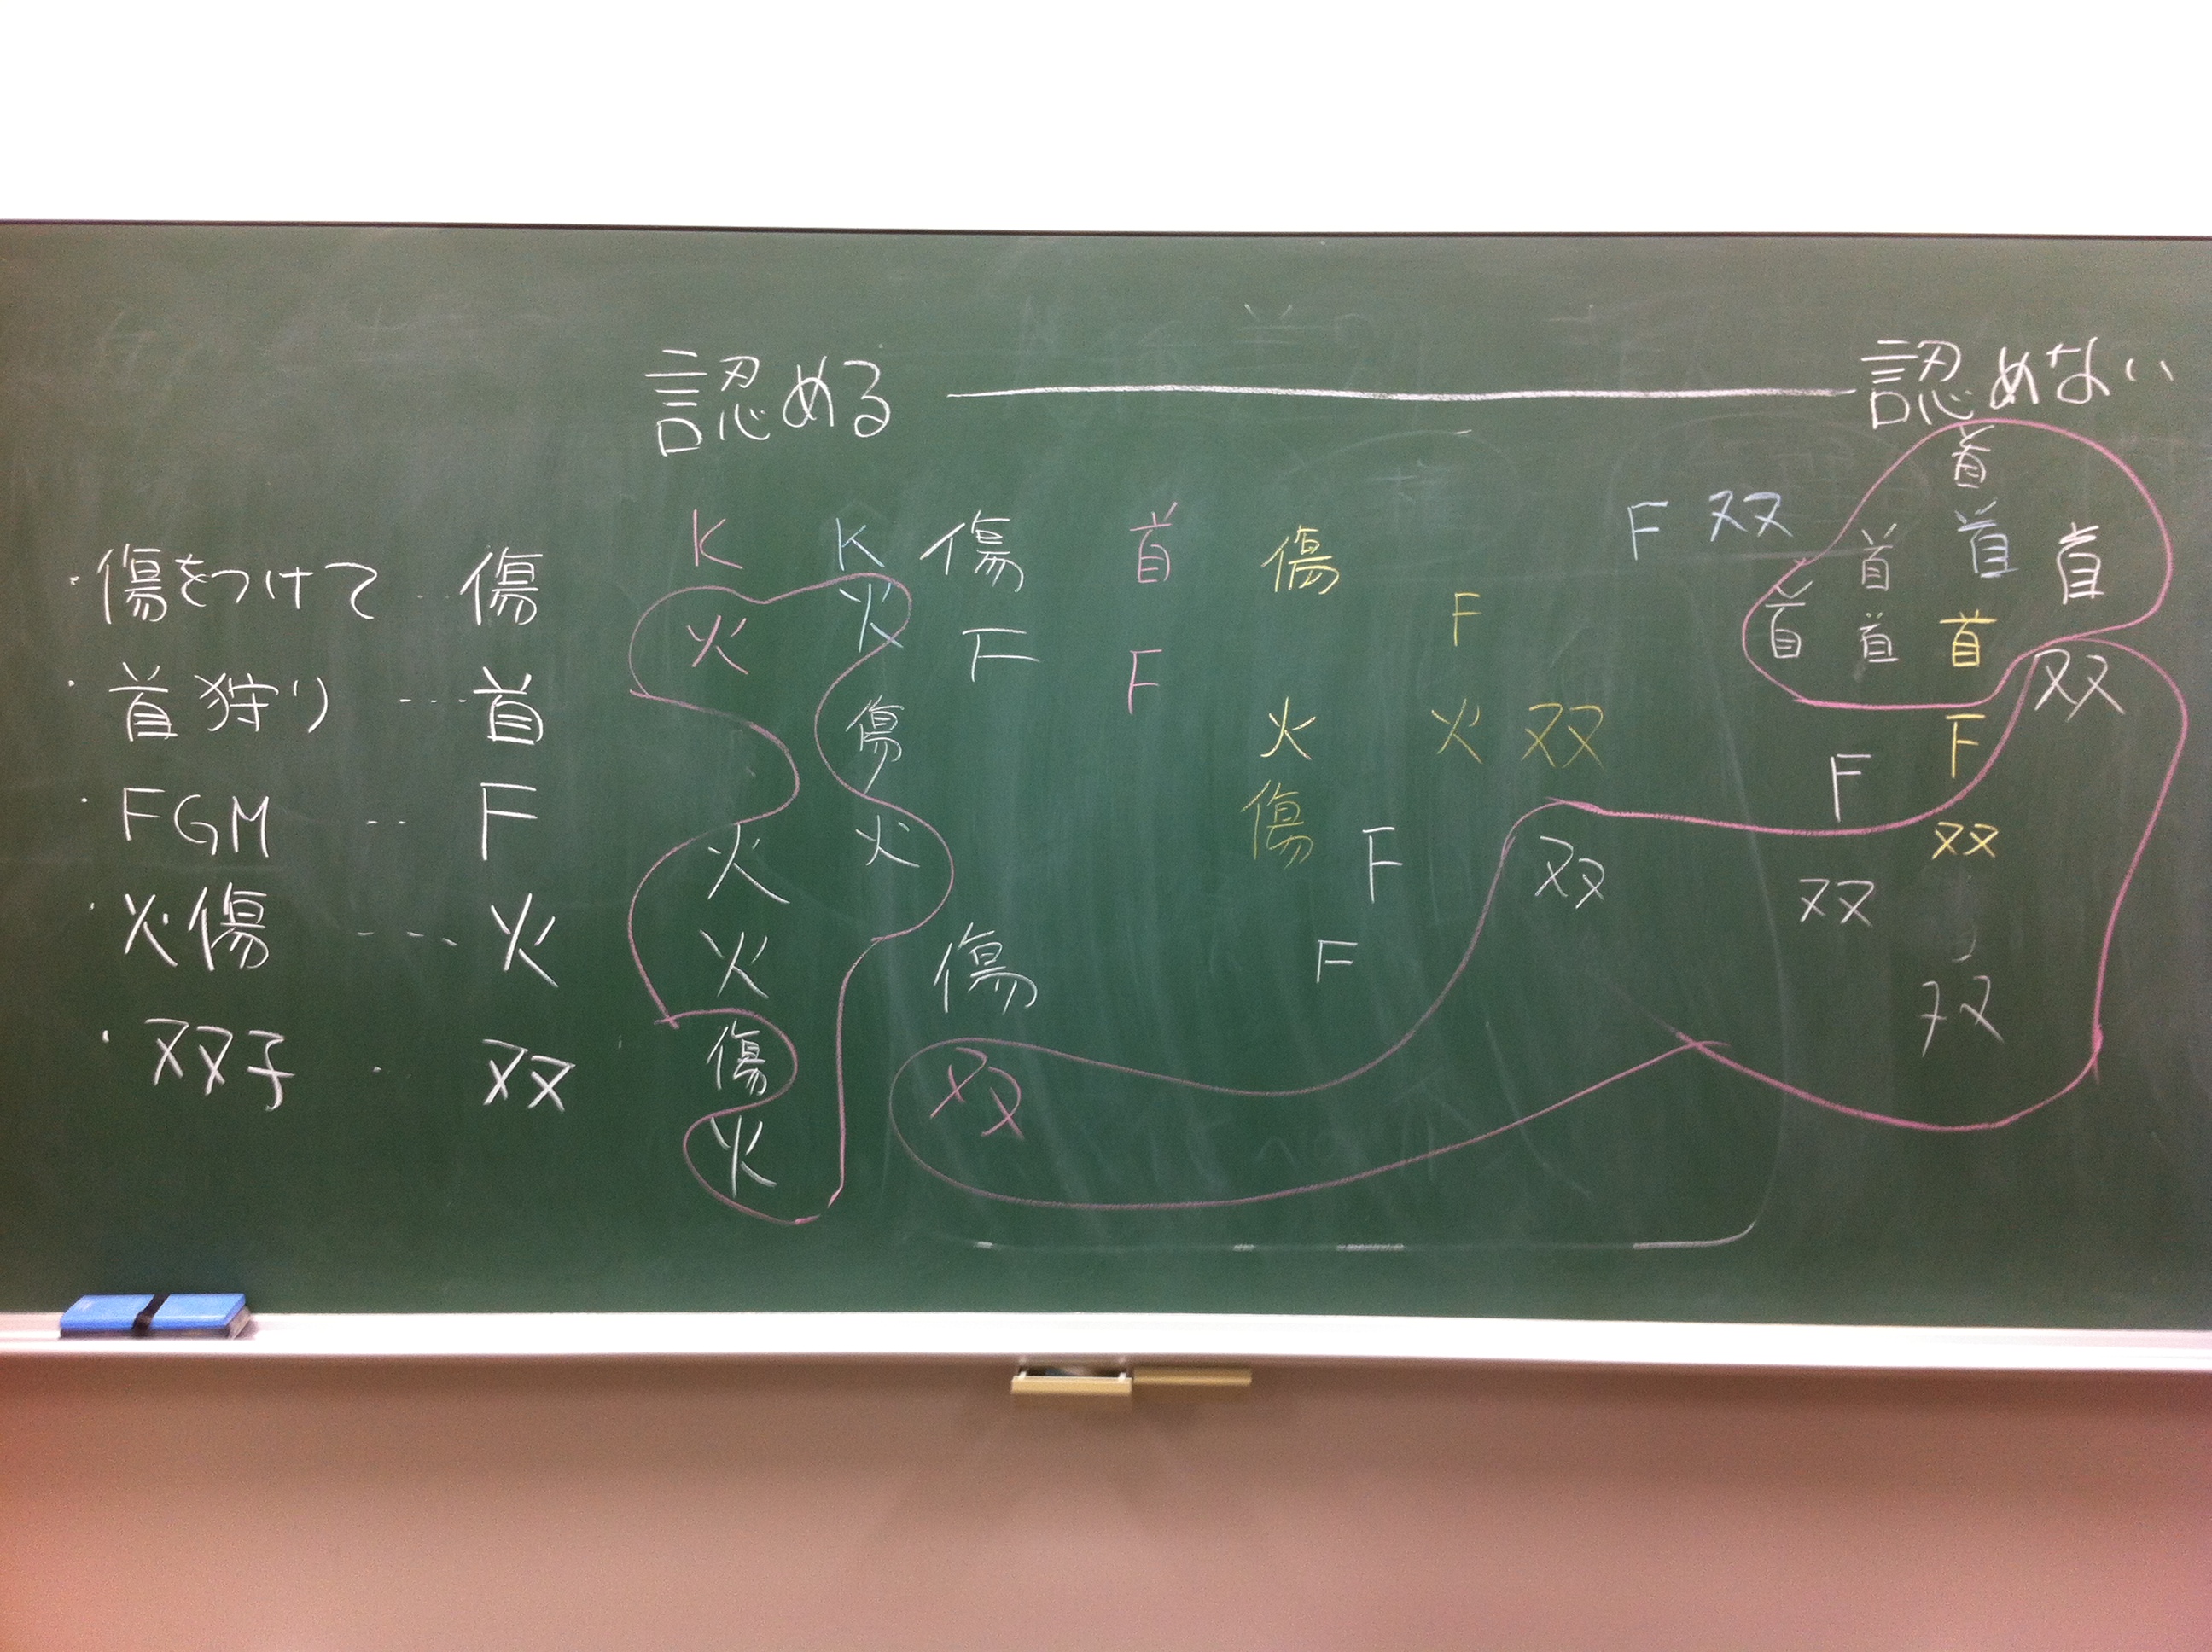 認める 認めない
・傷をつけて … 傷
・首狩り … 首
・FGM … F
・火傷 … 火
・双子 . 双
首
K K 傷 首 傷 F 双 首 首 首
火 火 F F F 首 首 首 双
傷 火 火 双 F F
火 火 傷 F 双 双 双
火 傷 F 双
傷 双
火